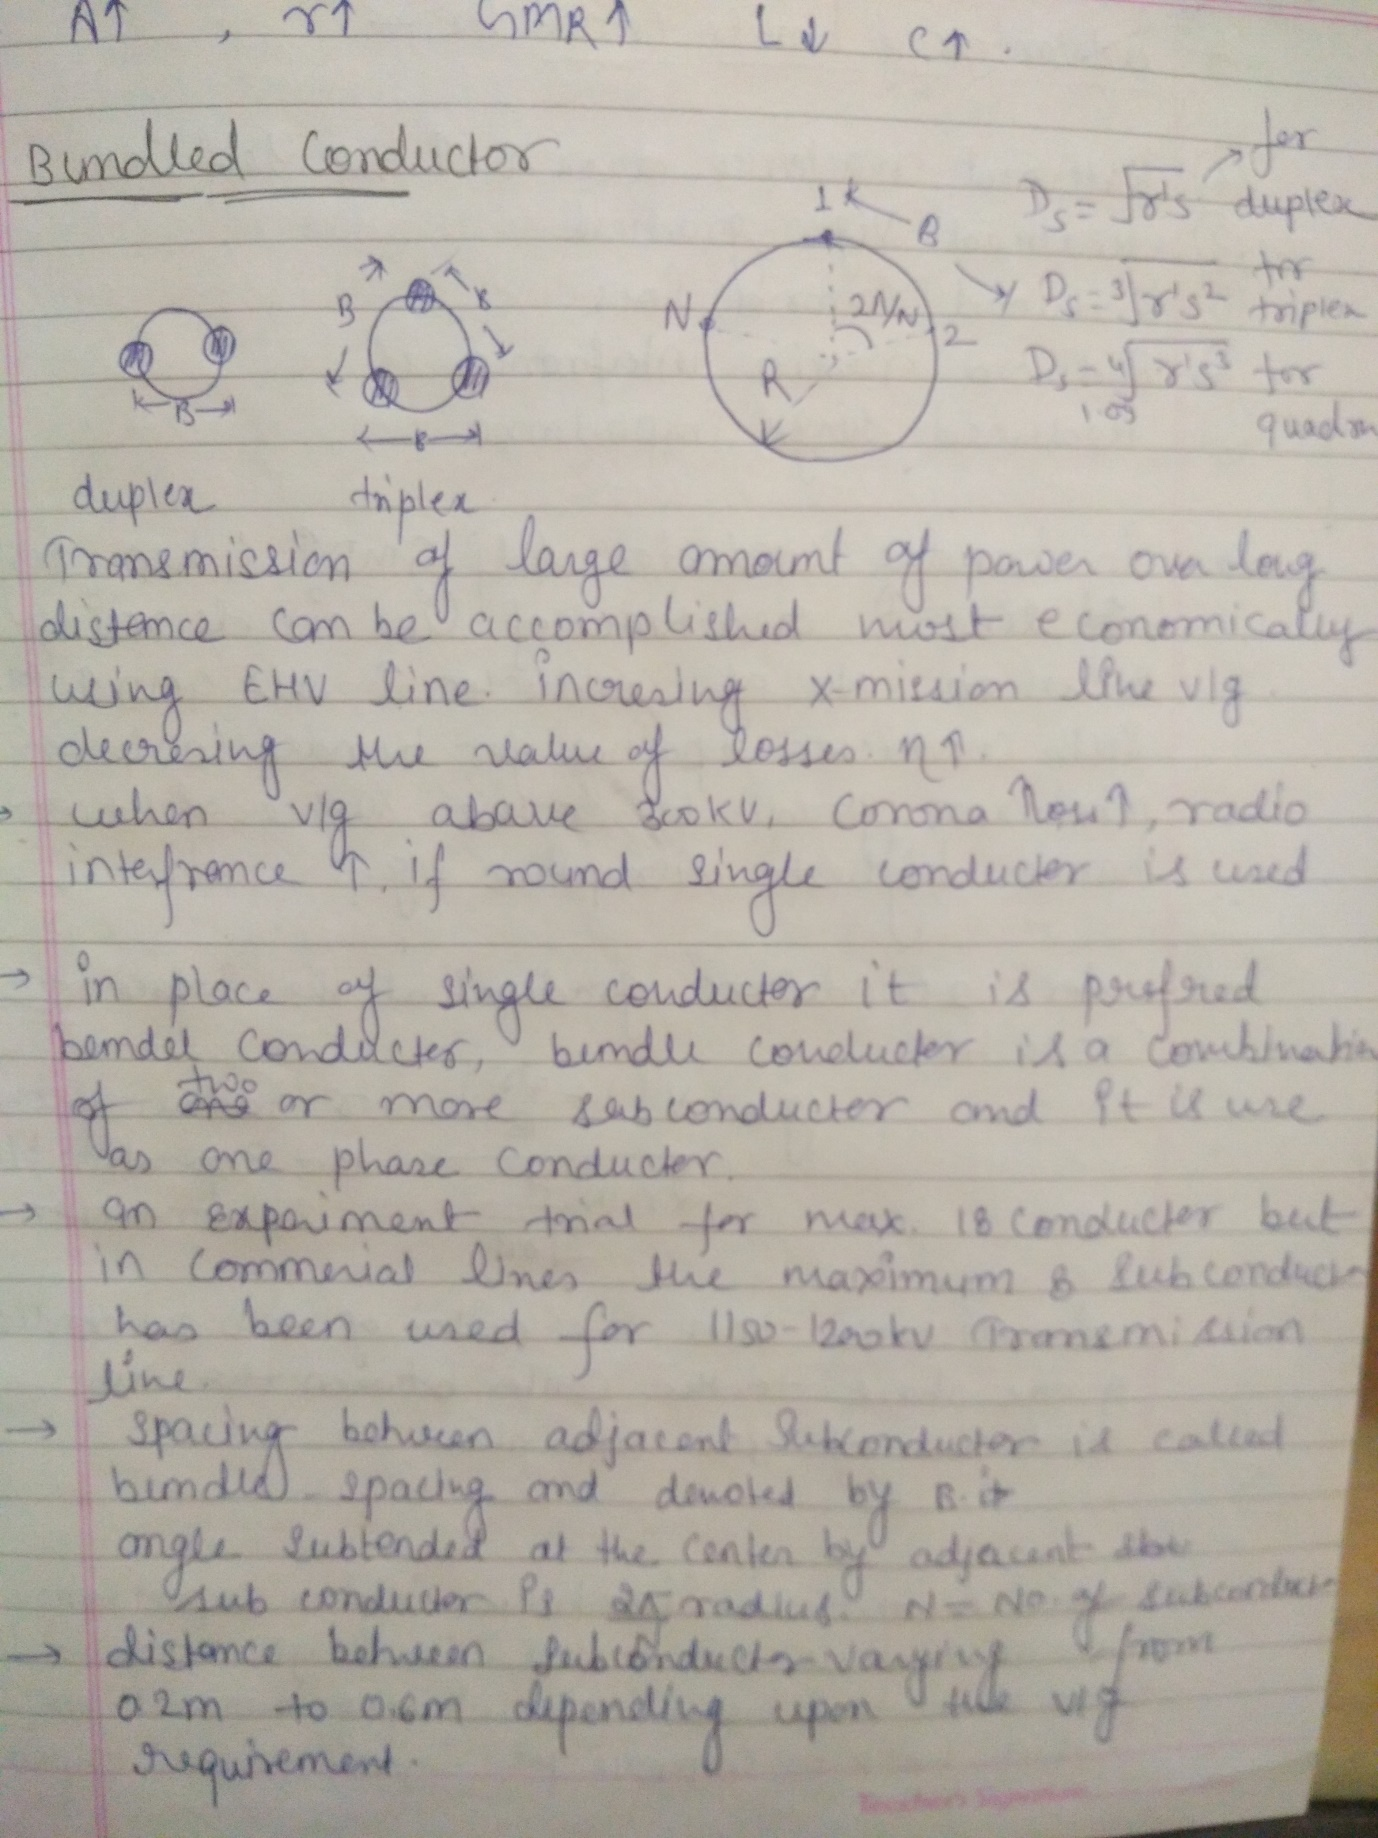 A↑ , r↑ GMR↑ L↓ C↑.
Bundled Conductor
1 B
N 2π/N 2
R
B
B
B
B
Ds = √r's for duplex
Ds = ³√r's² for triplex
Ds = ⁴√r's³ for
1.09
duplex triplex
Transmission of large amount of power over long
distance can be accomplished most economically
using EHV line. incresing x-mission line v/g
decresing the value of losses. η↑.
→ when v/g above 300kV, Corona loss↑, radio
interfrence ↑, if round single conductor is used
→ in place of single conductor it is prefred
bundel conducter, bundle conducter is a combination
of two or more subconductor and it is use
as one phase conducter.
→ an expeiment trial for max. 18 conducter but
in commerial lines the maximum 8 subconductor
has been used for 1150-1200kv Transmission
line.
→ spacing between adjacent subconductor is called
bundle spacing and denoted by B. it
angle subtended at the center by adjacent
sub conductor is radius. N = No. of subconductor
→ distance between subconductor varying from
0.2m to 0.6m depending upon the v/g
requirement.
Teacher's Signature